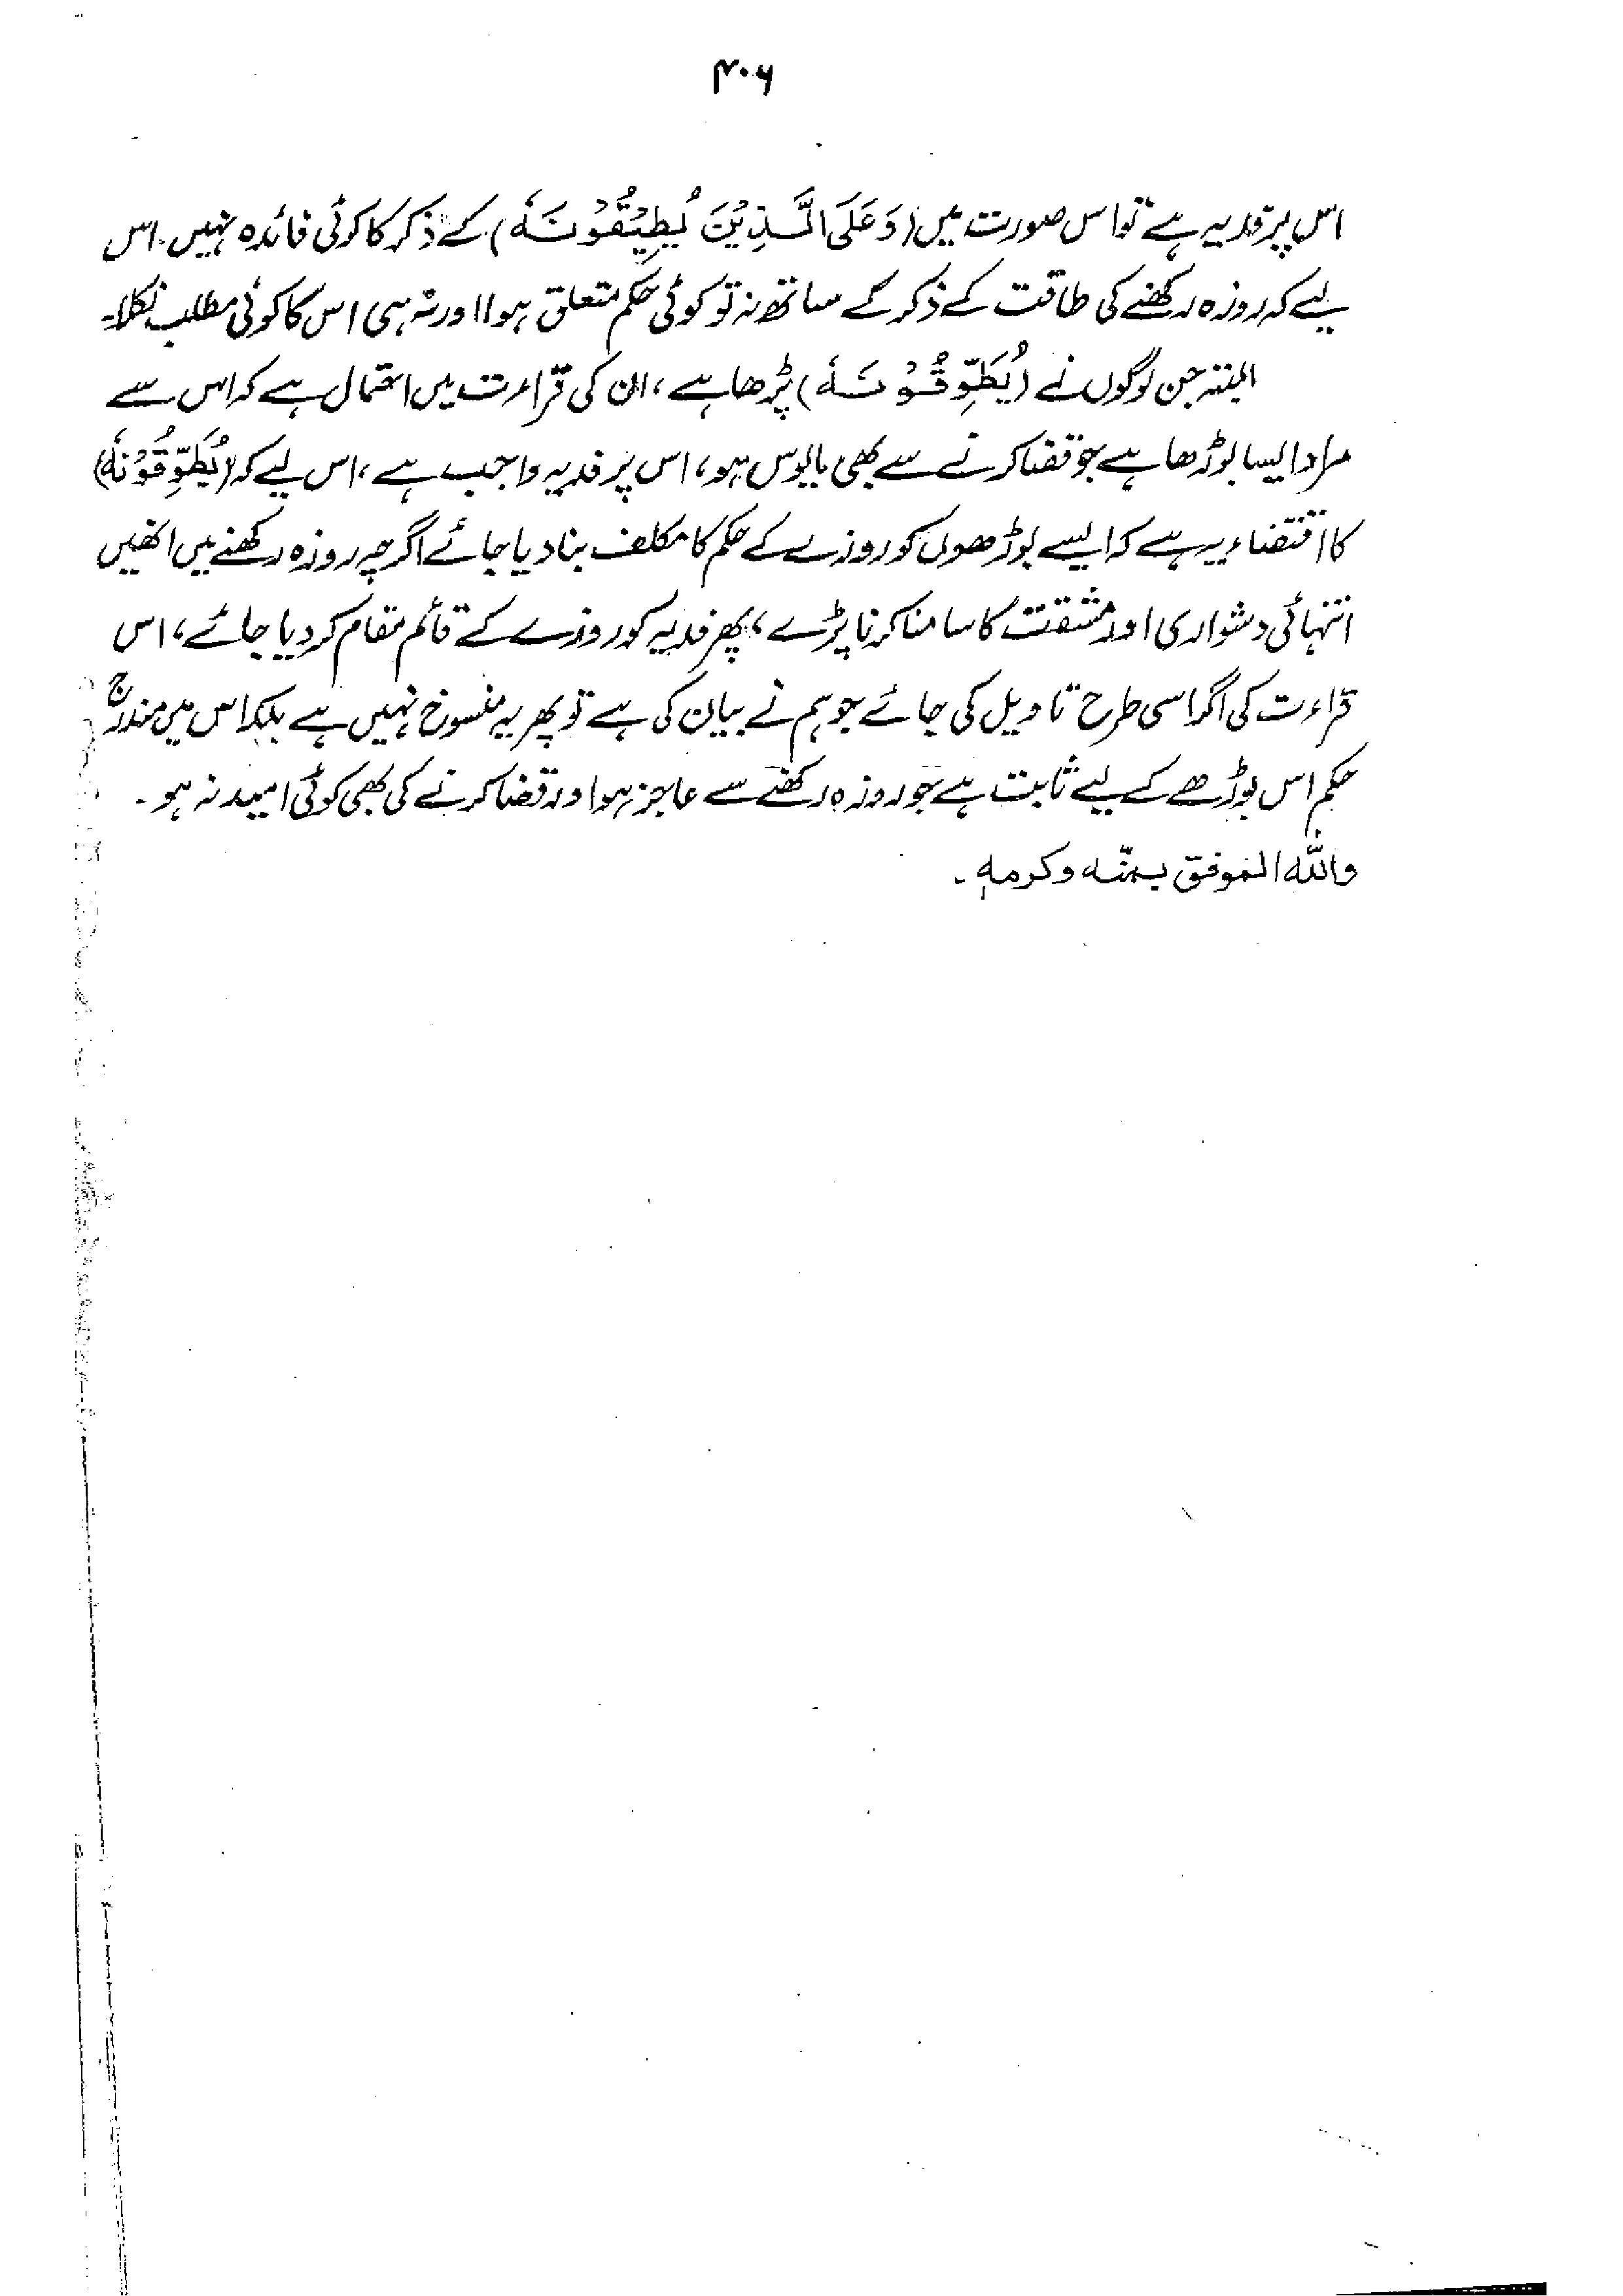 ۴۰۶
اس پر فدیہ ہے تو اس صورت میں (وَعَلَی الَّذِیْنَ یُطِیْقُوْنَہٗ) کے ذکر کا کوئی فائدہ نہیں۔ اس
لیے کہ روزہ رکھنے کی طاقت کے ذکر کے ساتھ نہ تو کوئی حکم متعلق ہوا اور نہ ہی اس کا کوئی مطلب نکلا۔
البتہ جن لوگوں نے (یُطَوِّقُوْنَہٗ) پڑھا ہے، ان کی قراءت میں احتمال ہے کہ اس سے
مراد ایسا بوڑھا ہے جو قضا کرنے سے بھی مایوس ہو، اس پر فدیہ واجب ہے، اس لیے کہ (یُطَوِّقُوْنَہٗ)
کا اقتضاء یہ ہے کہ ایسے بوڑھوں کو روزے کے حکم کا مکلف بنا دیا جائے اگرچہ روزہ رکھنے میں انھیں
انتہائی دشواری اور مشقت کا سامنا کرنا پڑے، پھر فدیہ کو روزے کے قائم مقام کر دیا جائے، اس
قراءت کی اگر اسی طرح تاویل کی جائے جو ہم نے بیان کی ہے تو پھر یہ منسوخ نہیں ہے بلکہ اس میں مندرج
حکم اس بوڑھے کے لیے ثابت ہے جو روزہ رکھنے سے عاجز ہو اور قضا کرنے کی بھی کوئی امید نہ ہو۔
واللّٰہ الموفق بمنّہ وکرمہٖ۔